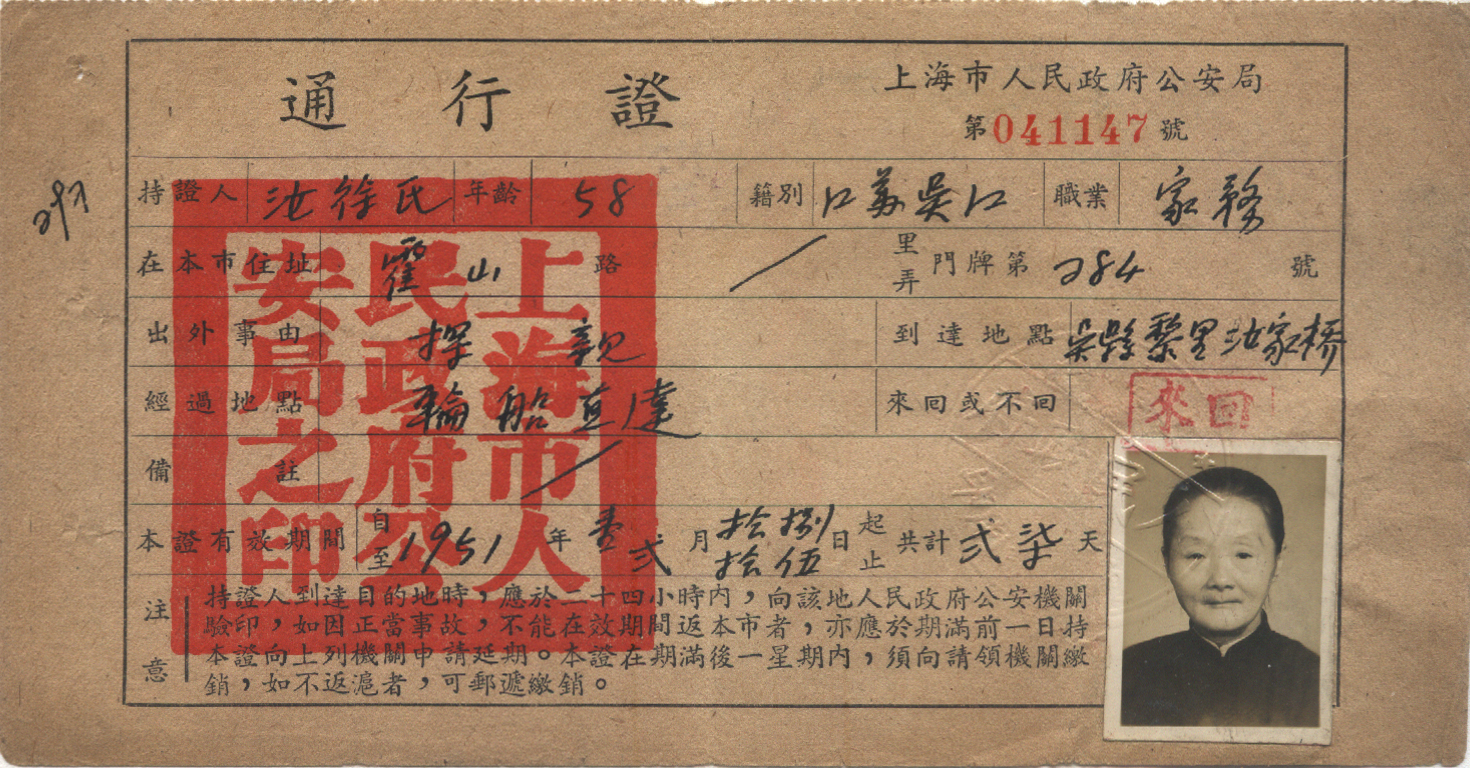 通行證
上海市人民政府公安局
第041147號
持證人 汝徐氏 年齡 58 籍別 江苏吳江 職業 家務
在本市住址 霍山路 里弄 門牌第 284 號
出外事由 探親 到達地點 吳縣黎里汝家橋
經過地點 輪船直達 來回或不回 來回
備註
本證有效期間 自至 1951年 壹 弍 月 拾捌 拾伍 日 起止 共計 弍柒 天
注意
持證人到達目的地時，應於二十四小時內，向該地人民政府公安機關
驗印，如因正當事故，不能在效期間返本市者，亦應於期滿前一日持
本證，向上列機關申請延期。本證在期滿後一星期內，須向請領機關繳
銷，如不返滬者，可郵遞繳銷。
上海市人民政府公安局之印